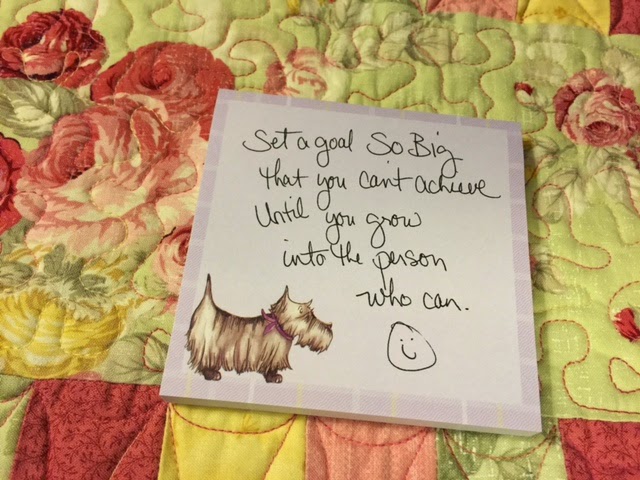 Set a goal So Big
that you can't achieve
Until you grow
into the person
who can.